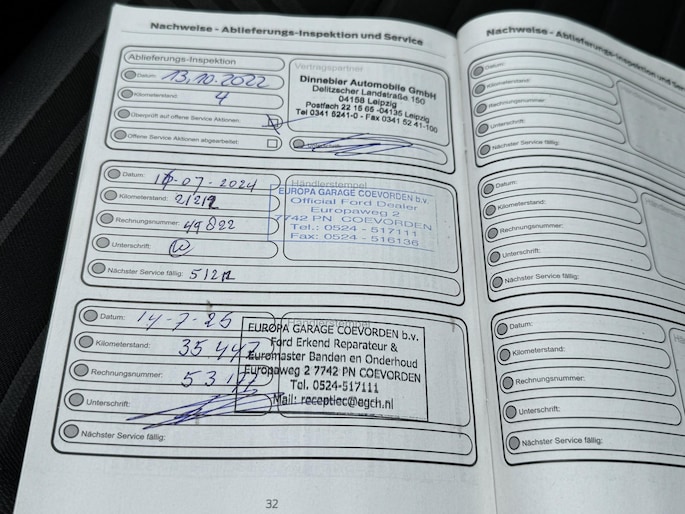 Nachweise - Ablieferungs-Inspektion und Service
Ablieferungs-Inspektion
Datum: 13.10.2022
Kilometerstand: 4
Überprüft auf offene Service Aktionen:
Offene Service Aktionen abgearbeitet:
Vertragspartner
Dinnebier Automobile GmbH
Delitzscher Landstraße 150
04158 Leipzig
Postfach 22 15 65 -04135 Leipzig
Tel 0341 5241-0 - Fax 0341 52 41-100
Datum: -07-2024
Kilometerstand:
Rechnungsnummer: 49822
Unterschrift:
Nächster Service fällig:
Händlerstempel
EUROPA GARAGE COEVORDEN b.v.
Official Ford Dealer
Europaweg 2
7742 PN COEVORDEN
Tel.: 0524 - 517111
Fax: 0524 - 516136
Datum: 14-7-25
Kilometerstand: 35447
Rechnungsnummer:
Unterschrift:
Nächster Service fällig:
Händlerstempel
EUROPA GARAGE COEVORDEN b.v.
Ford Erkend Reparateur &
Euromaster Banden en Onderhoud
Europaweg 2 7742 PN COEVORDEN
Tel. 0524-517111
Mail: receptiec@egch.nl
32
Nachweise - Ablieferungs-Inspektion und Se
Datum:
Kilometerstand:
Rechnungsnummer:
Unterschrift:
Nächster Service fällig:
Datum:
Kilometerstand:
Rechnungsnummer:
Unterschrift:
Nächster Service fällig:
Datum:
Kilometerstand:
Rechnungsnummer:
Unterschrift:
Nächster Service fällig: